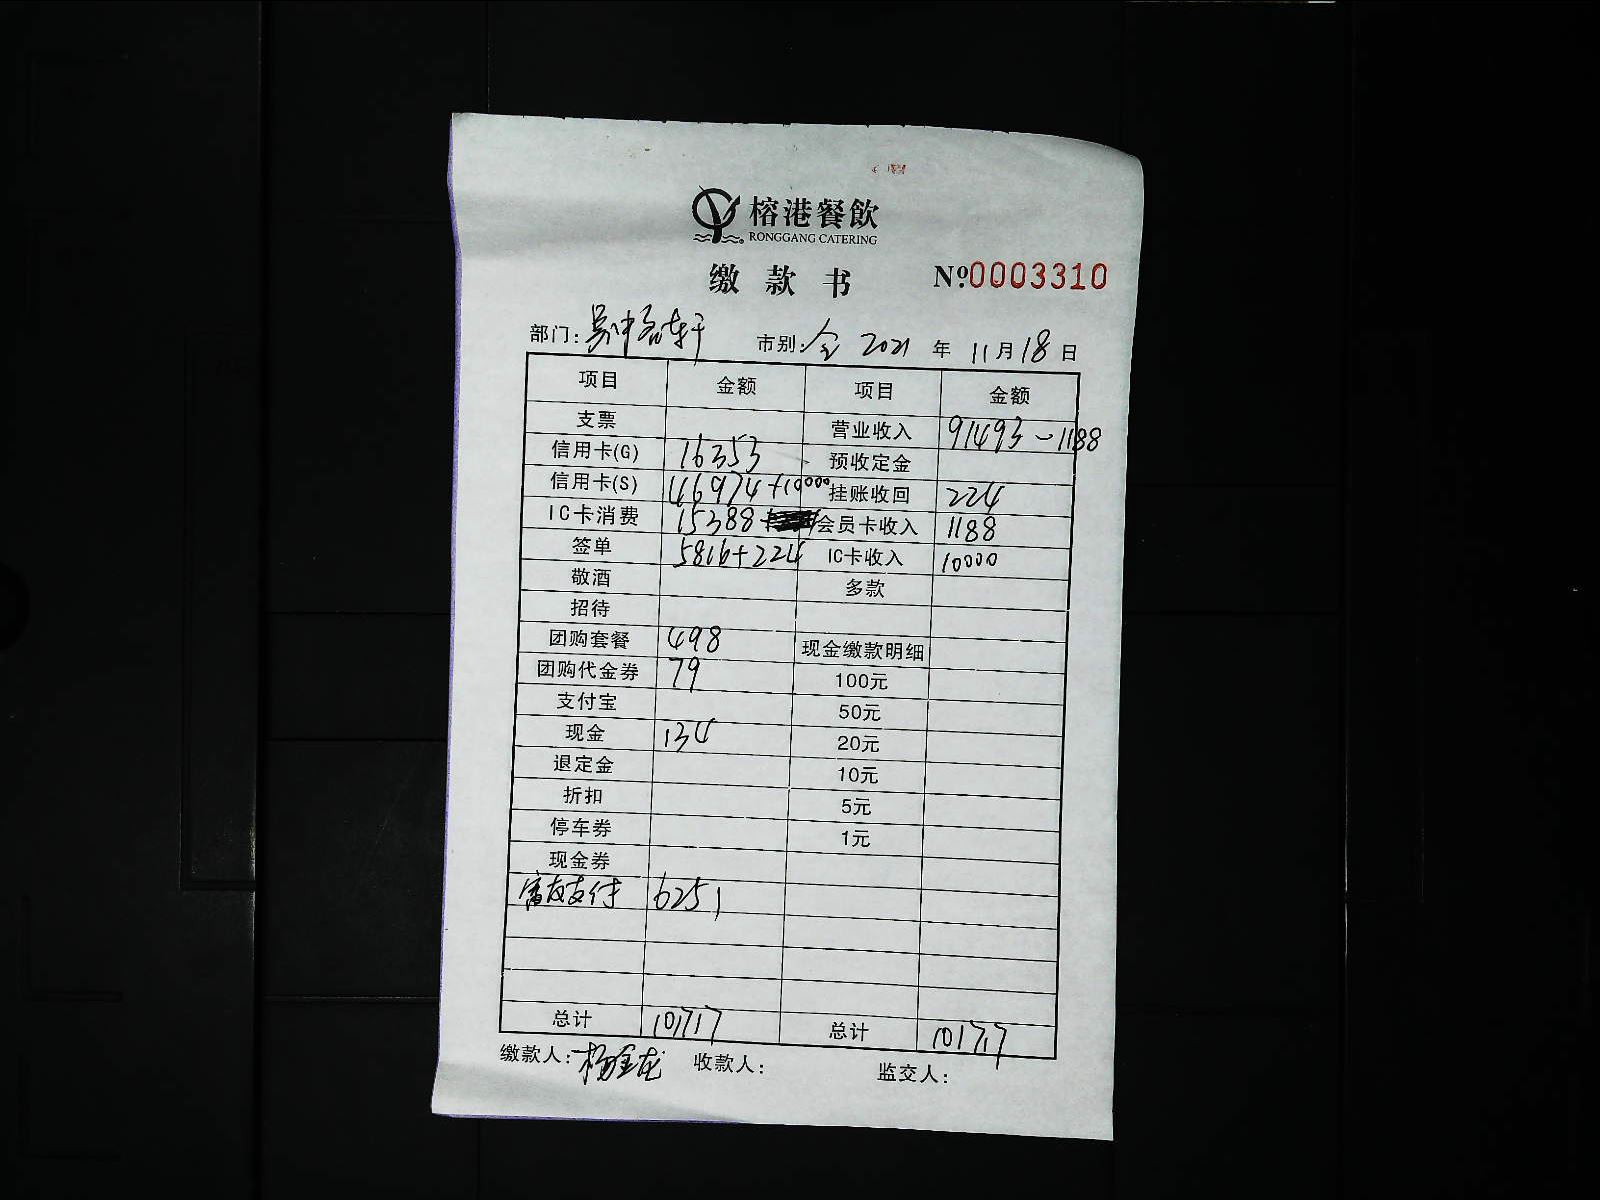 榕港餐飲
RONGGANG CATERING
缴款书 №0003310
部门: 市别: 全 2021 年 11 月 18 日
项目 金额 项目 金额
支票 营业收入 91493-1188
信用卡(G) 16353 预收定金
信用卡(S) 46974+10000 挂账收回 224
IC卡消费 15388 会员卡收入 1188
签单 5816+224 IC卡收入 10000
敬酒 多款
招待
团购套餐 498 现金缴款明细
团购代金券 79 100元
支付宝 50元
现金 134 20元
退定金 10元
折扣 5元
停车券 1元
现金券
富友支付 6251
总计 101717 总计 101717
缴款人: 杨金龙 收款人: 监交人: